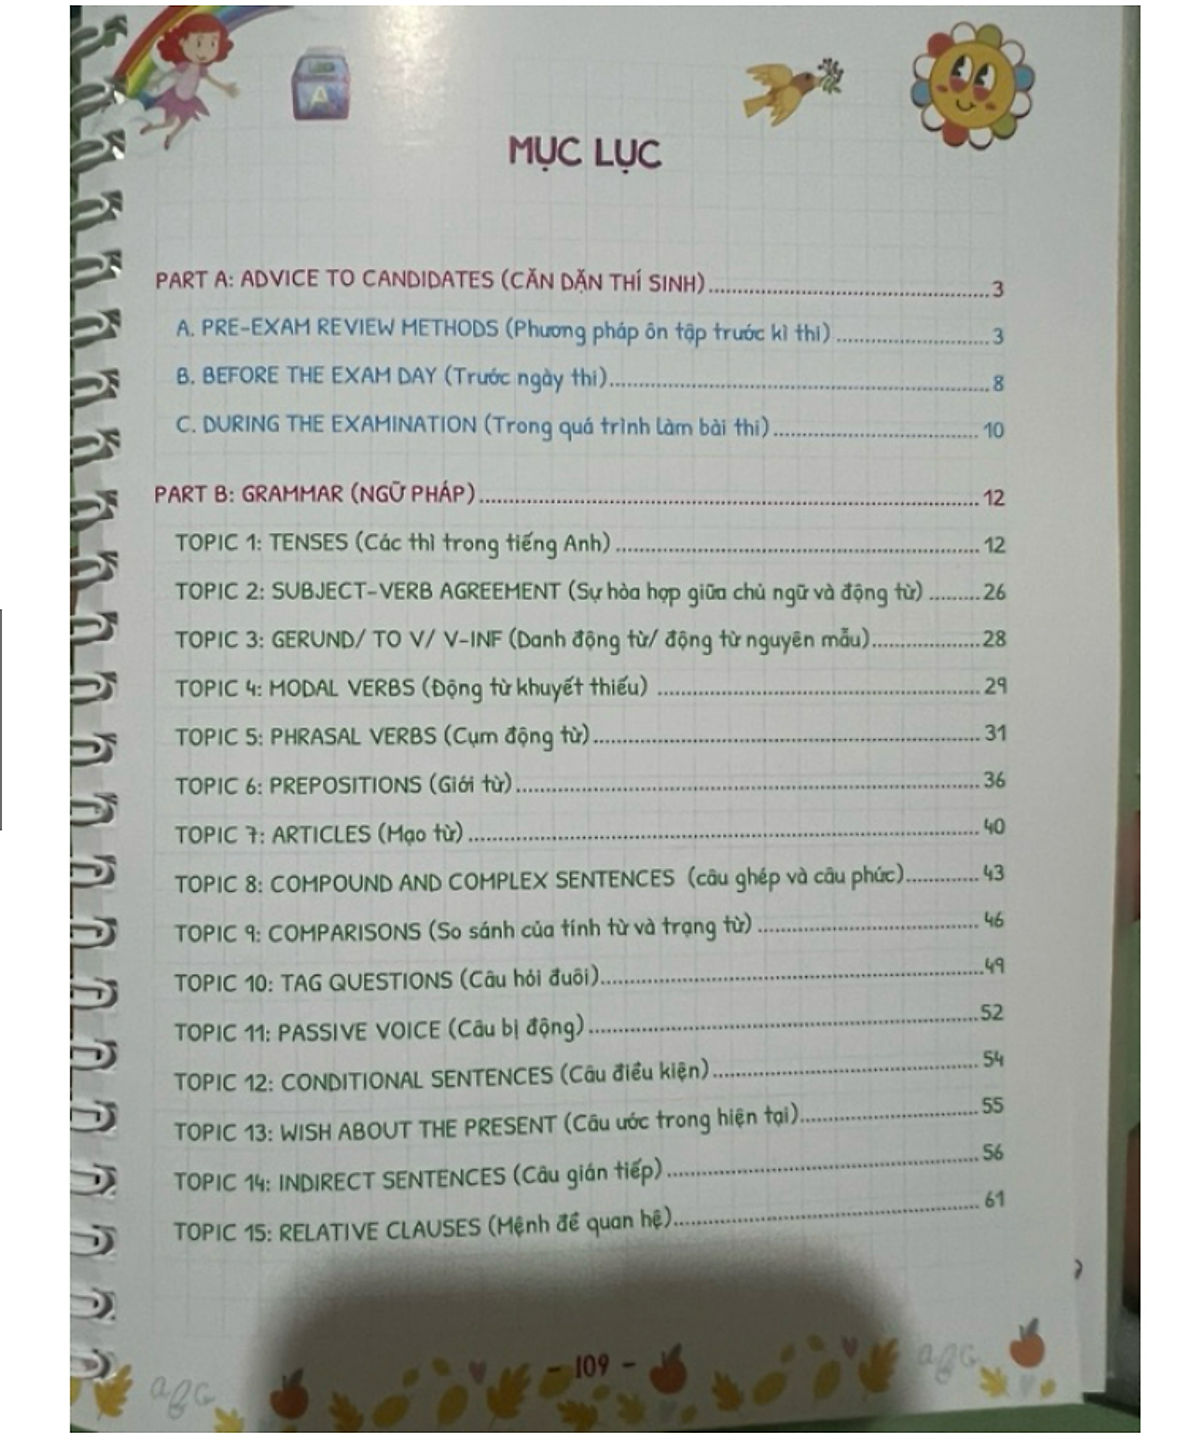 A
MỤC LỤC
PART A: ADVICE TO CANDIDATES (CĂN DẶN THÍ SINH) 3
A. PRE-EXAM REVIEW METHODS (Phương pháp ôn tập trước kì thi) 3
B. BEFORE THE EXAM DAY (Trước ngày thi) 8
C. DURING THE EXAMINATION (Trong quá trình làm bài thi) 10
PART B: GRAMMAR (NGỮ PHÁP) 12
TOPIC 1: TENSES (Các thì trong tiếng Anh) 12
TOPIC 2: SUBJECT-VERB AGREEMENT (Sự hòa hợp giữa chủ ngữ và động từ) 26
TOPIC 3: GERUND/ TO V/ V-INF (Danh động từ/ động từ nguyên mẫu) 28
TOPIC 4: MODAL VERBS (Động từ khuyết thiếu) 29
TOPIC 5: PHRASAL VERBS (Cụm động từ) 31
TOPIC 6: PREPOSITIONS (Giới từ) 36
TOPIC 7: ARTICLES (Mạo từ) 40
TOPIC 8: COMPOUND AND COMPLEX SENTENCES (câu ghép và câu phức) 43
TOPIC 9: COMPARISONS (So sánh của tính từ và trạng từ) 46
TOPIC 10: TAG QUESTIONS (Câu hỏi đuôi) 49
TOPIC 11: PASSIVE VOICE (Câu bị động) 52
TOPIC 12: CONDITIONAL SENTENCES (Câu điều kiện) 54
TOPIC 13: WISH ABOUT THE PRESENT (Câu ước trong hiện tại) 55
TOPIC 14: INDIRECT SENTENCES (Câu gián tiếp) 56
TOPIC 15: RELATIVE CLAUSES (Mệnh đề quan hệ) 61
- 109 -